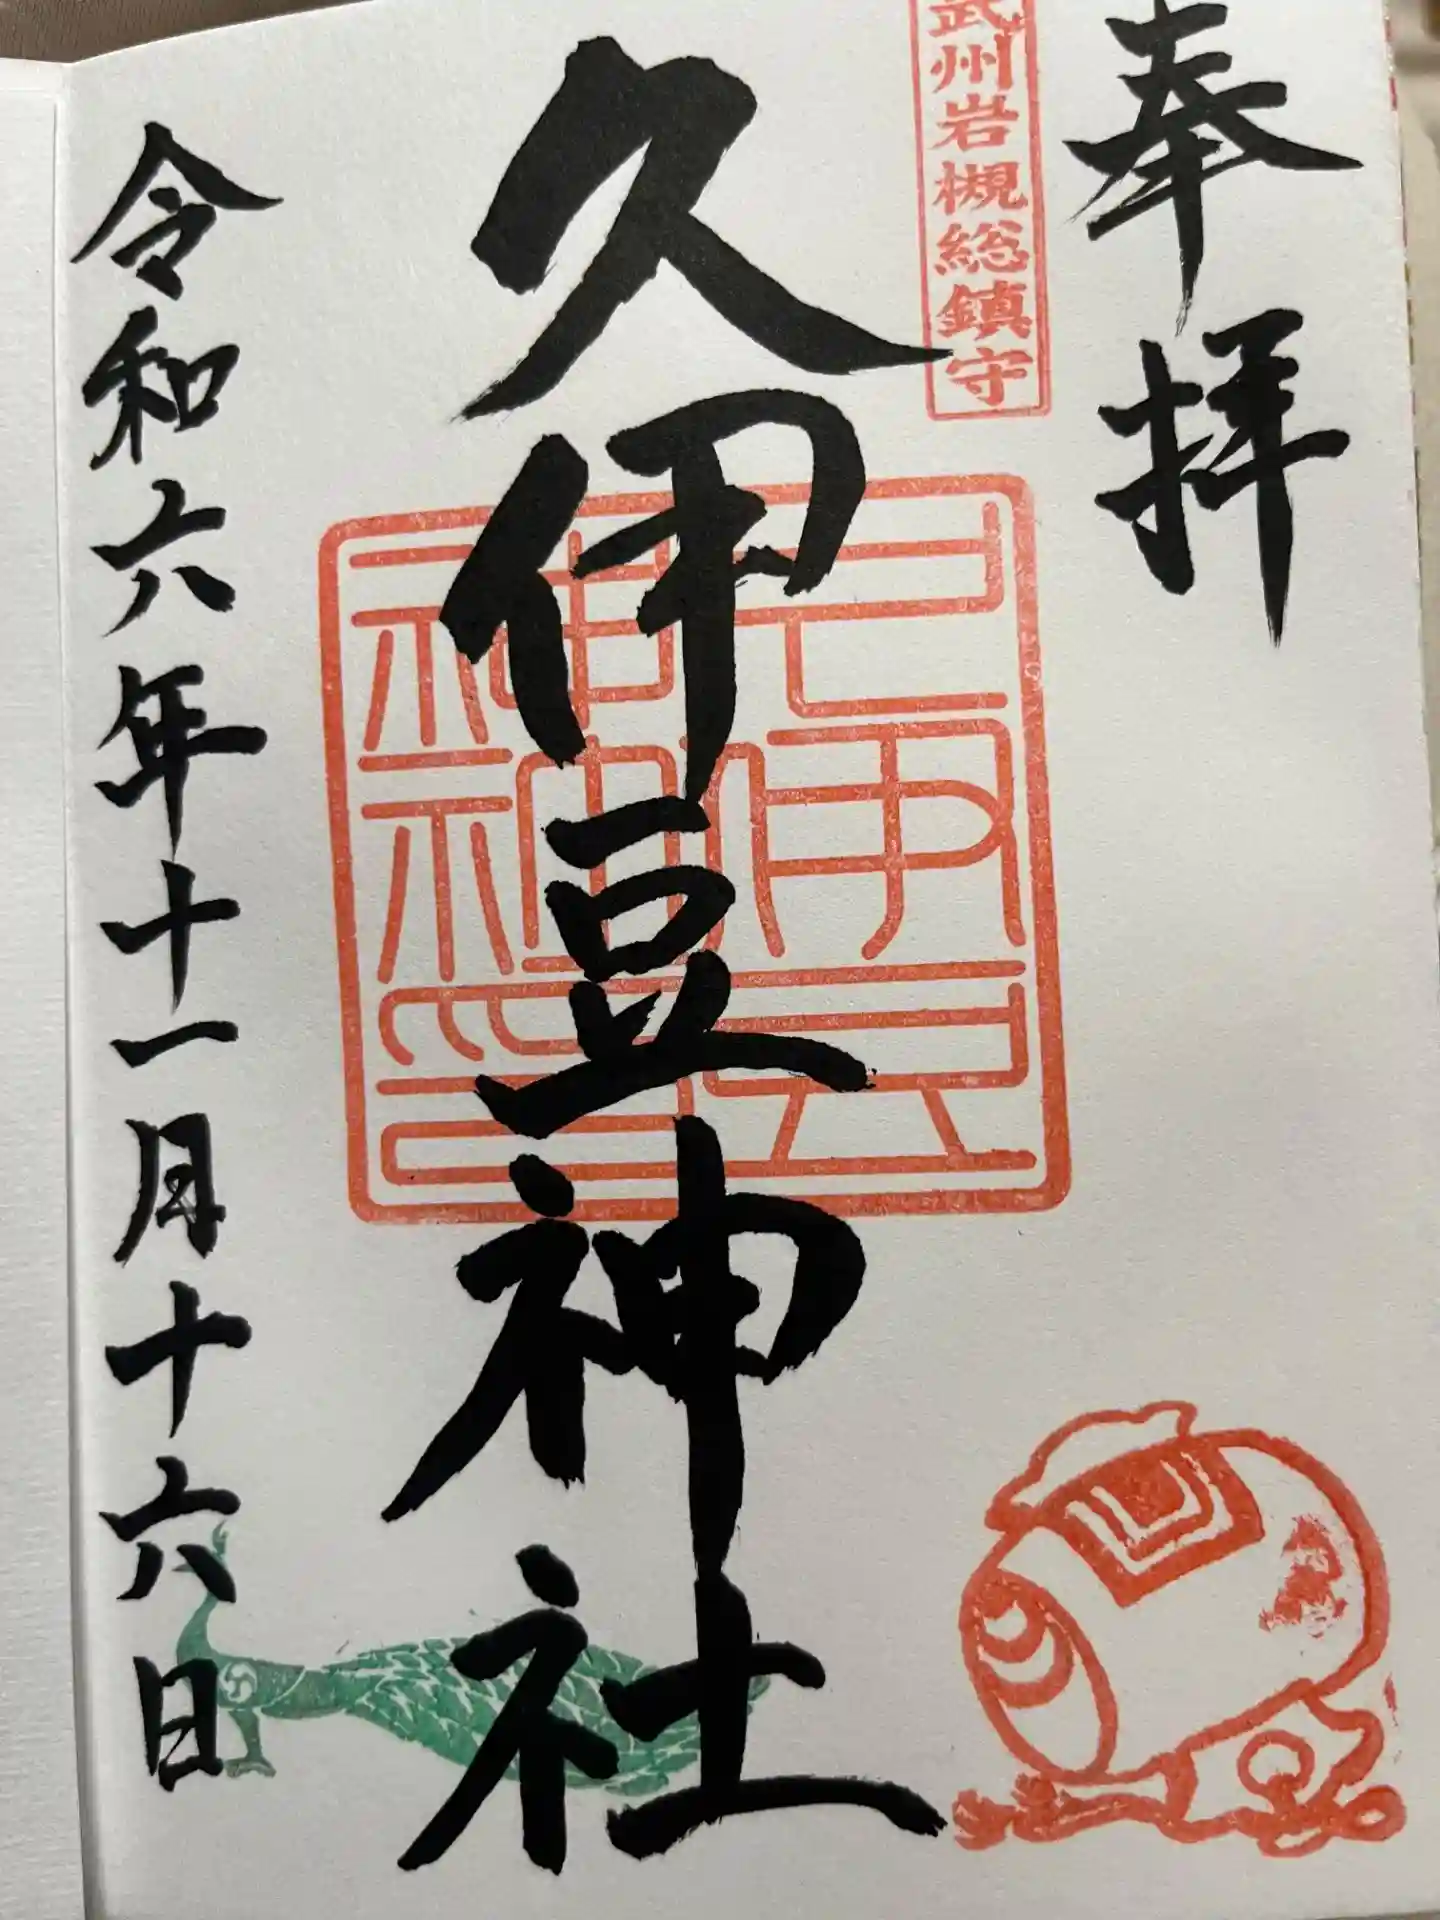 奉拝
武州岩槻総鎮守
久伊豆神社
久伊豆
神社神印
令和六年十一月十六日